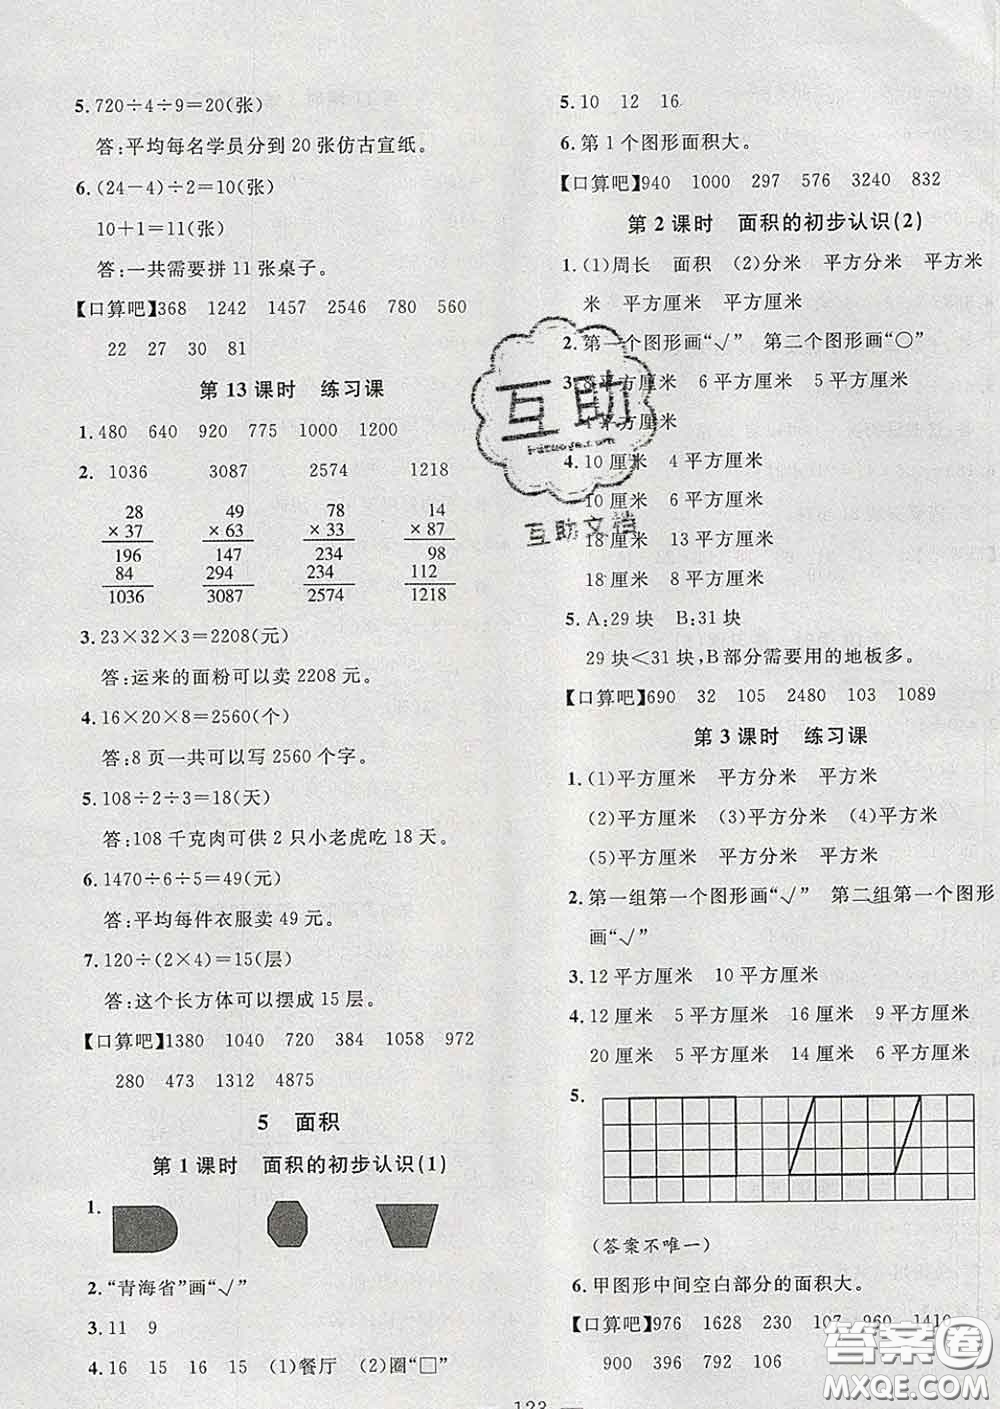 5. 720÷4÷9=20(张)
答:平均每名学员分到 20 张仿古宣纸。
6. (24-4)÷2=10(张)
10+1=11(张)
答:一共需要拼 11 张桌子。
【口算吧】368 1242 1457 2546 780 560
22 27 30 81
第 13 课时 练习课
1. 480 640 920 775 1000 1200
2. 1036 3087 2574 1218
28 49 78 14
×37 ×63 ×33 ×87
196 147 234 98
84 294 234 112
1036 3087 2574 1218
3. 23×32×3=2208(元)
答:运来的面粉可以卖 2208 元。
4. 16×20×8=2560(个)
答:8 页一共可以写 2560 个字。
5. 108÷2÷3=18(天)
答:108 千克肉可供 2 只小老虎吃 18 天。
6. 1470÷6÷5=49(元)
答:平均每件衣服卖 49 元。
7. 120÷(2×4)=15(层)
答:这个长方体可以摆成 15 层。
【口算吧】1380 1040 720 384 1058 972
280 473 1312 4875
5 面积
第 1 课时 面积的初步认识(1)
1.
2. “青海省”画“√”
3. 11 9
4. 16 15 16 15 (1)餐厅 (2)圈“□”
5. 10 12 16
6. 第 1 个图形面积大。
【口算吧】940 1000 297 576 3240 832
第 2 课时 面积的初步认识(2)
1. (1)周长 面积 (2)分米 平方分米 平方米
米 平方厘米 平方厘米
2. 第一个图形画“√” 第二个图形画“○”
3. 8 平方厘米 6 平方厘米 5 平方厘米
平方厘米
4. 10 厘米 4 平方厘米
10 厘米 6 平方厘米
18 厘米 13 平方厘米
18 厘米 8 平方厘米
5. A:29 块 B:31 块
29 块<31 块,B 部分需要用的地板多。
【口算吧】690 32 105 2480 103 1089
第 3 课时 练习课
1. (1)平方厘米 平方分米 平方米
(2)平方厘米 (3)平方分米 (4)平方米
(5)平方厘米 平方分米 平方米
2. 第一组第一个图形画“√” 第二组第一个图形
画“√”
3. 12 平方厘米 10 平方厘米
4. 12 厘米 5 平方厘米 16 厘米 9 平方厘米
20 厘米 5 平方厘米 14 厘米 6 平方厘米
5.
(答案不唯一)
6. 甲图形中间空白部分的面积大。
【口算吧】976 1628 230 107 960 1410
900 396 792 106
123
互助
互助文档
答案圈
MXQE.COM